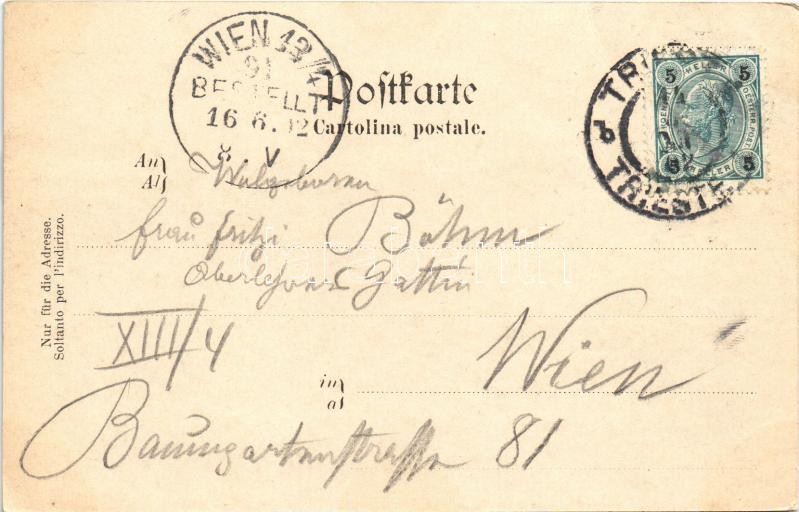 WIEN 13/4
91
BESTELLT
16 6. 02
8 V
Postkarte
Cartolina postale.
TRIESTE
TRIESTE
5 HELLER 5
5 HELLER 5
An
Al
Wolgeboren
Frau Fritzi Böhm
Oberlehrers Gattin
XIII/4
in
a
Wien
Baumgartenstrasse 81
Nur für die Adresse.
Soltanto per l'indirizzo.
darabanth